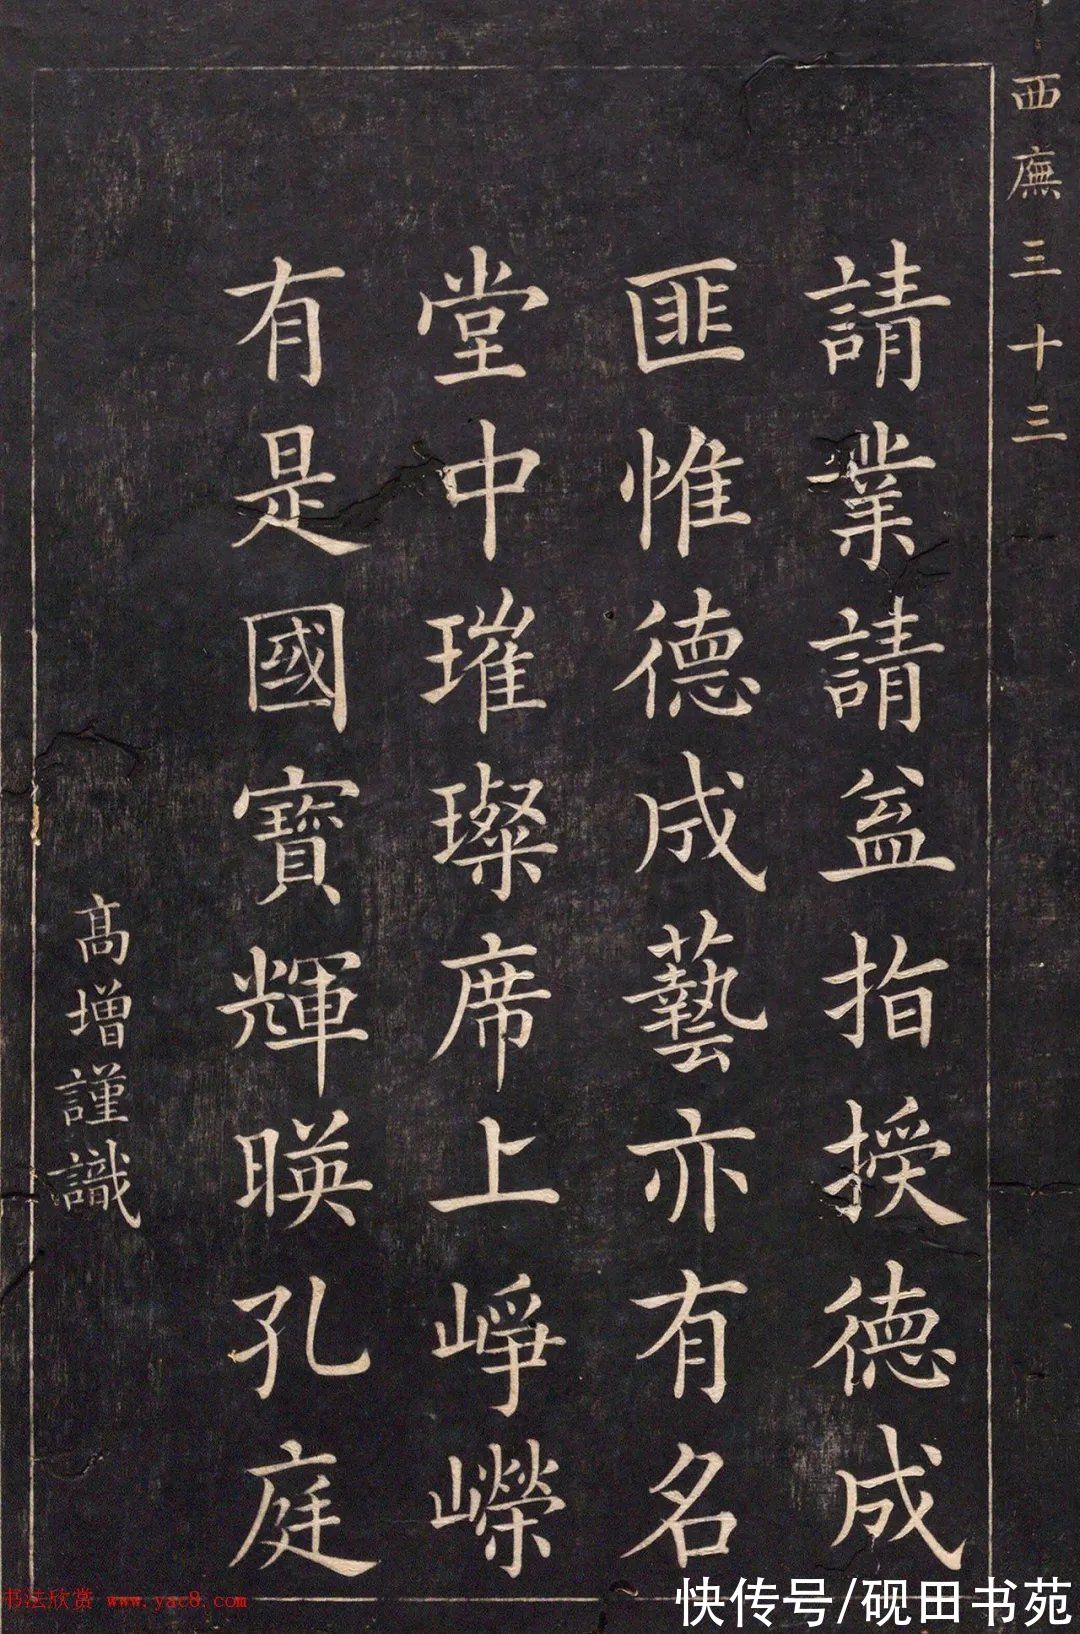 西廡三十三
請業請益指授德成
匪惟德成藝亦有名
堂中璀璨席上崢嶸
有是國寶輝暎孔庭
高增謹識
书法欣赏 www.yac8.com
快传号/砚田书苑